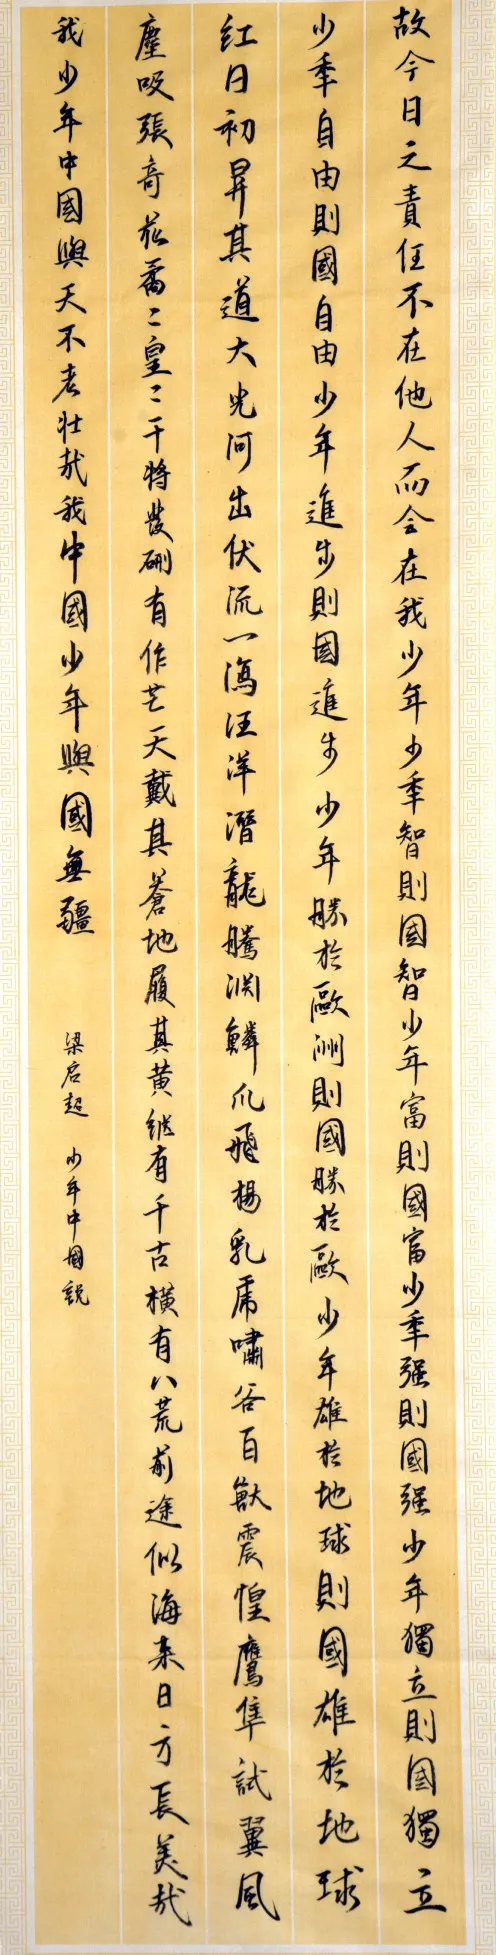 故今日之責任不在他人而全在我少年少秊智則國智少年富則國富少秊强則國强少年獨立則國獨立
少秊自由則國自由少年進步則國進步少年勝於歐洲則國勝於歐少年雄於地球則國雄於地球
红日初昇其道大光河出伏流一瀉汪洋潛龍騰淵鱗爪飛揚乳虎嘯谷百獸震惶鷹隼試翼風
塵吸張奇花矞〻皇〻干將發硎有作芒天戴其蒼地履其黄縱有千古橫有八荒前途似海来日方長美哉
我少年中國與天不老壯哉我中國少年與國無疆
梁启超 少年中國説